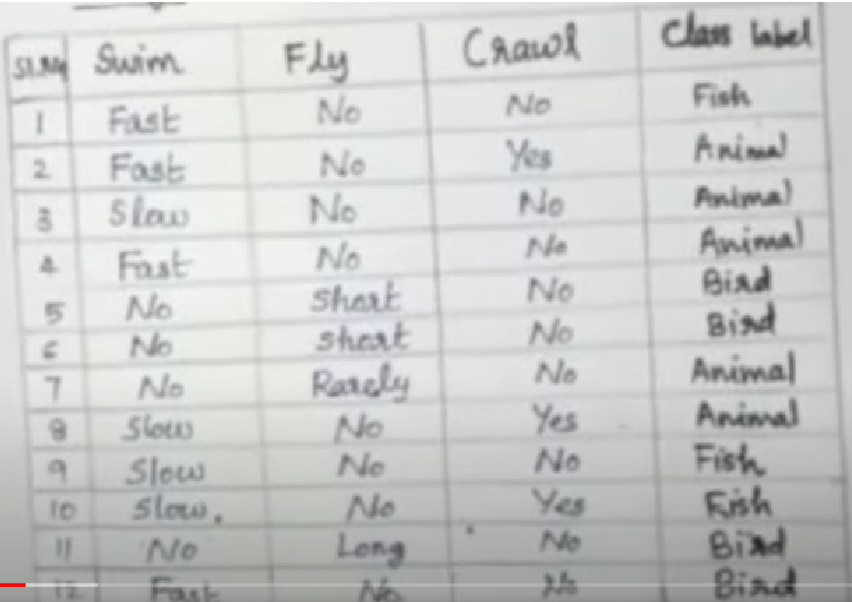 Sl.No Swim Fly Crawl Class label
1 Fast No No Fish
2 Fast No Yes Animal
3 Slow No No Animal
4 Fast No No Animal
5 No Short No Bird
6 No Short No Bird
7 No Rarely No Animal
8 Slow No Yes Animal
9 Slow No No Fish
10 Slow. No Yes Fish
11 No Long No Bird
12 Fast No No Bird